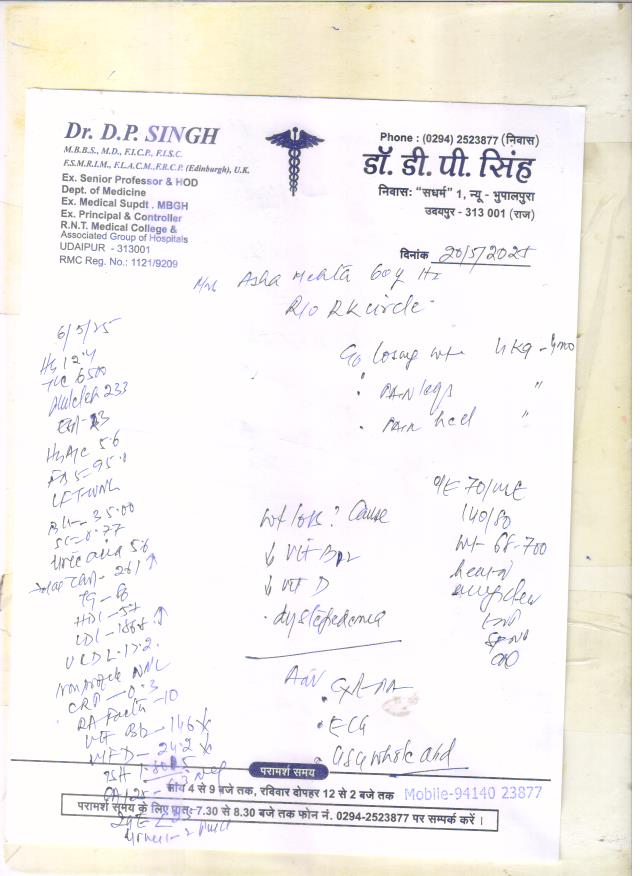 Dr. D.P. SINGH
M.B.B.S., M.D., F.I.C.P., F.I.S.C.
F.S.M.R.I.M., F.L.A.C.M.,F.R.C.P. (Edinburgh), U.K.
Ex. Senior Professor & HOD
Dept. of Medicine
Ex. Medical Supdt . MBGH
Ex. Principal & Controller
R.N.T. Medical College &
Associated Group of Hospitals
UDAIPUR - 313001
RMC Reg. No.: 1121/9209
Phone : (0294) 2523877 (निवास)
डॉ. डी. पी. सिंह
निवास: "सधर्म" 1, न्यू - भुपालपुरा
उदयपुर - 313 001 (राज)
दिनांक 20/5/2025
Asha Mehta 60y
R/O RK circle
6/5/25
Hg 12.4
TLC 6500
233
HbA1c 5.6
FBS - 95.
LFT-WNL
SC - 0.77
Uric acid 5.6
261 ↑
TG - 
HDL - 
LDL - 
VLDL - 17.2
Iron profile WNL
CRP - 0.3
RA Factor - 10
Vit B12 - 146
Vit D - 24.2
TSH
CA 125 -
losing wt 4 KG - 4mo
• PAIN legs "
• PAIN heel "
O/E 70/mt
140/80
wt - 68.700
wt loss ? Cause
↓ Vit B12
↓ Vit D
Adv
• CXR-PA
• ECG
• USG whole abd
परामर्श समय
सांय 4 से 9 बजे तक, रविवार दोपहर 12 से 2 बजे तक Mobile-94140 23877
परामर्श समय के लिए प्रात: 7.30 से 8.30 बजे तक फोन नं. 0294-2523877 पर सम्पर्क करें ।